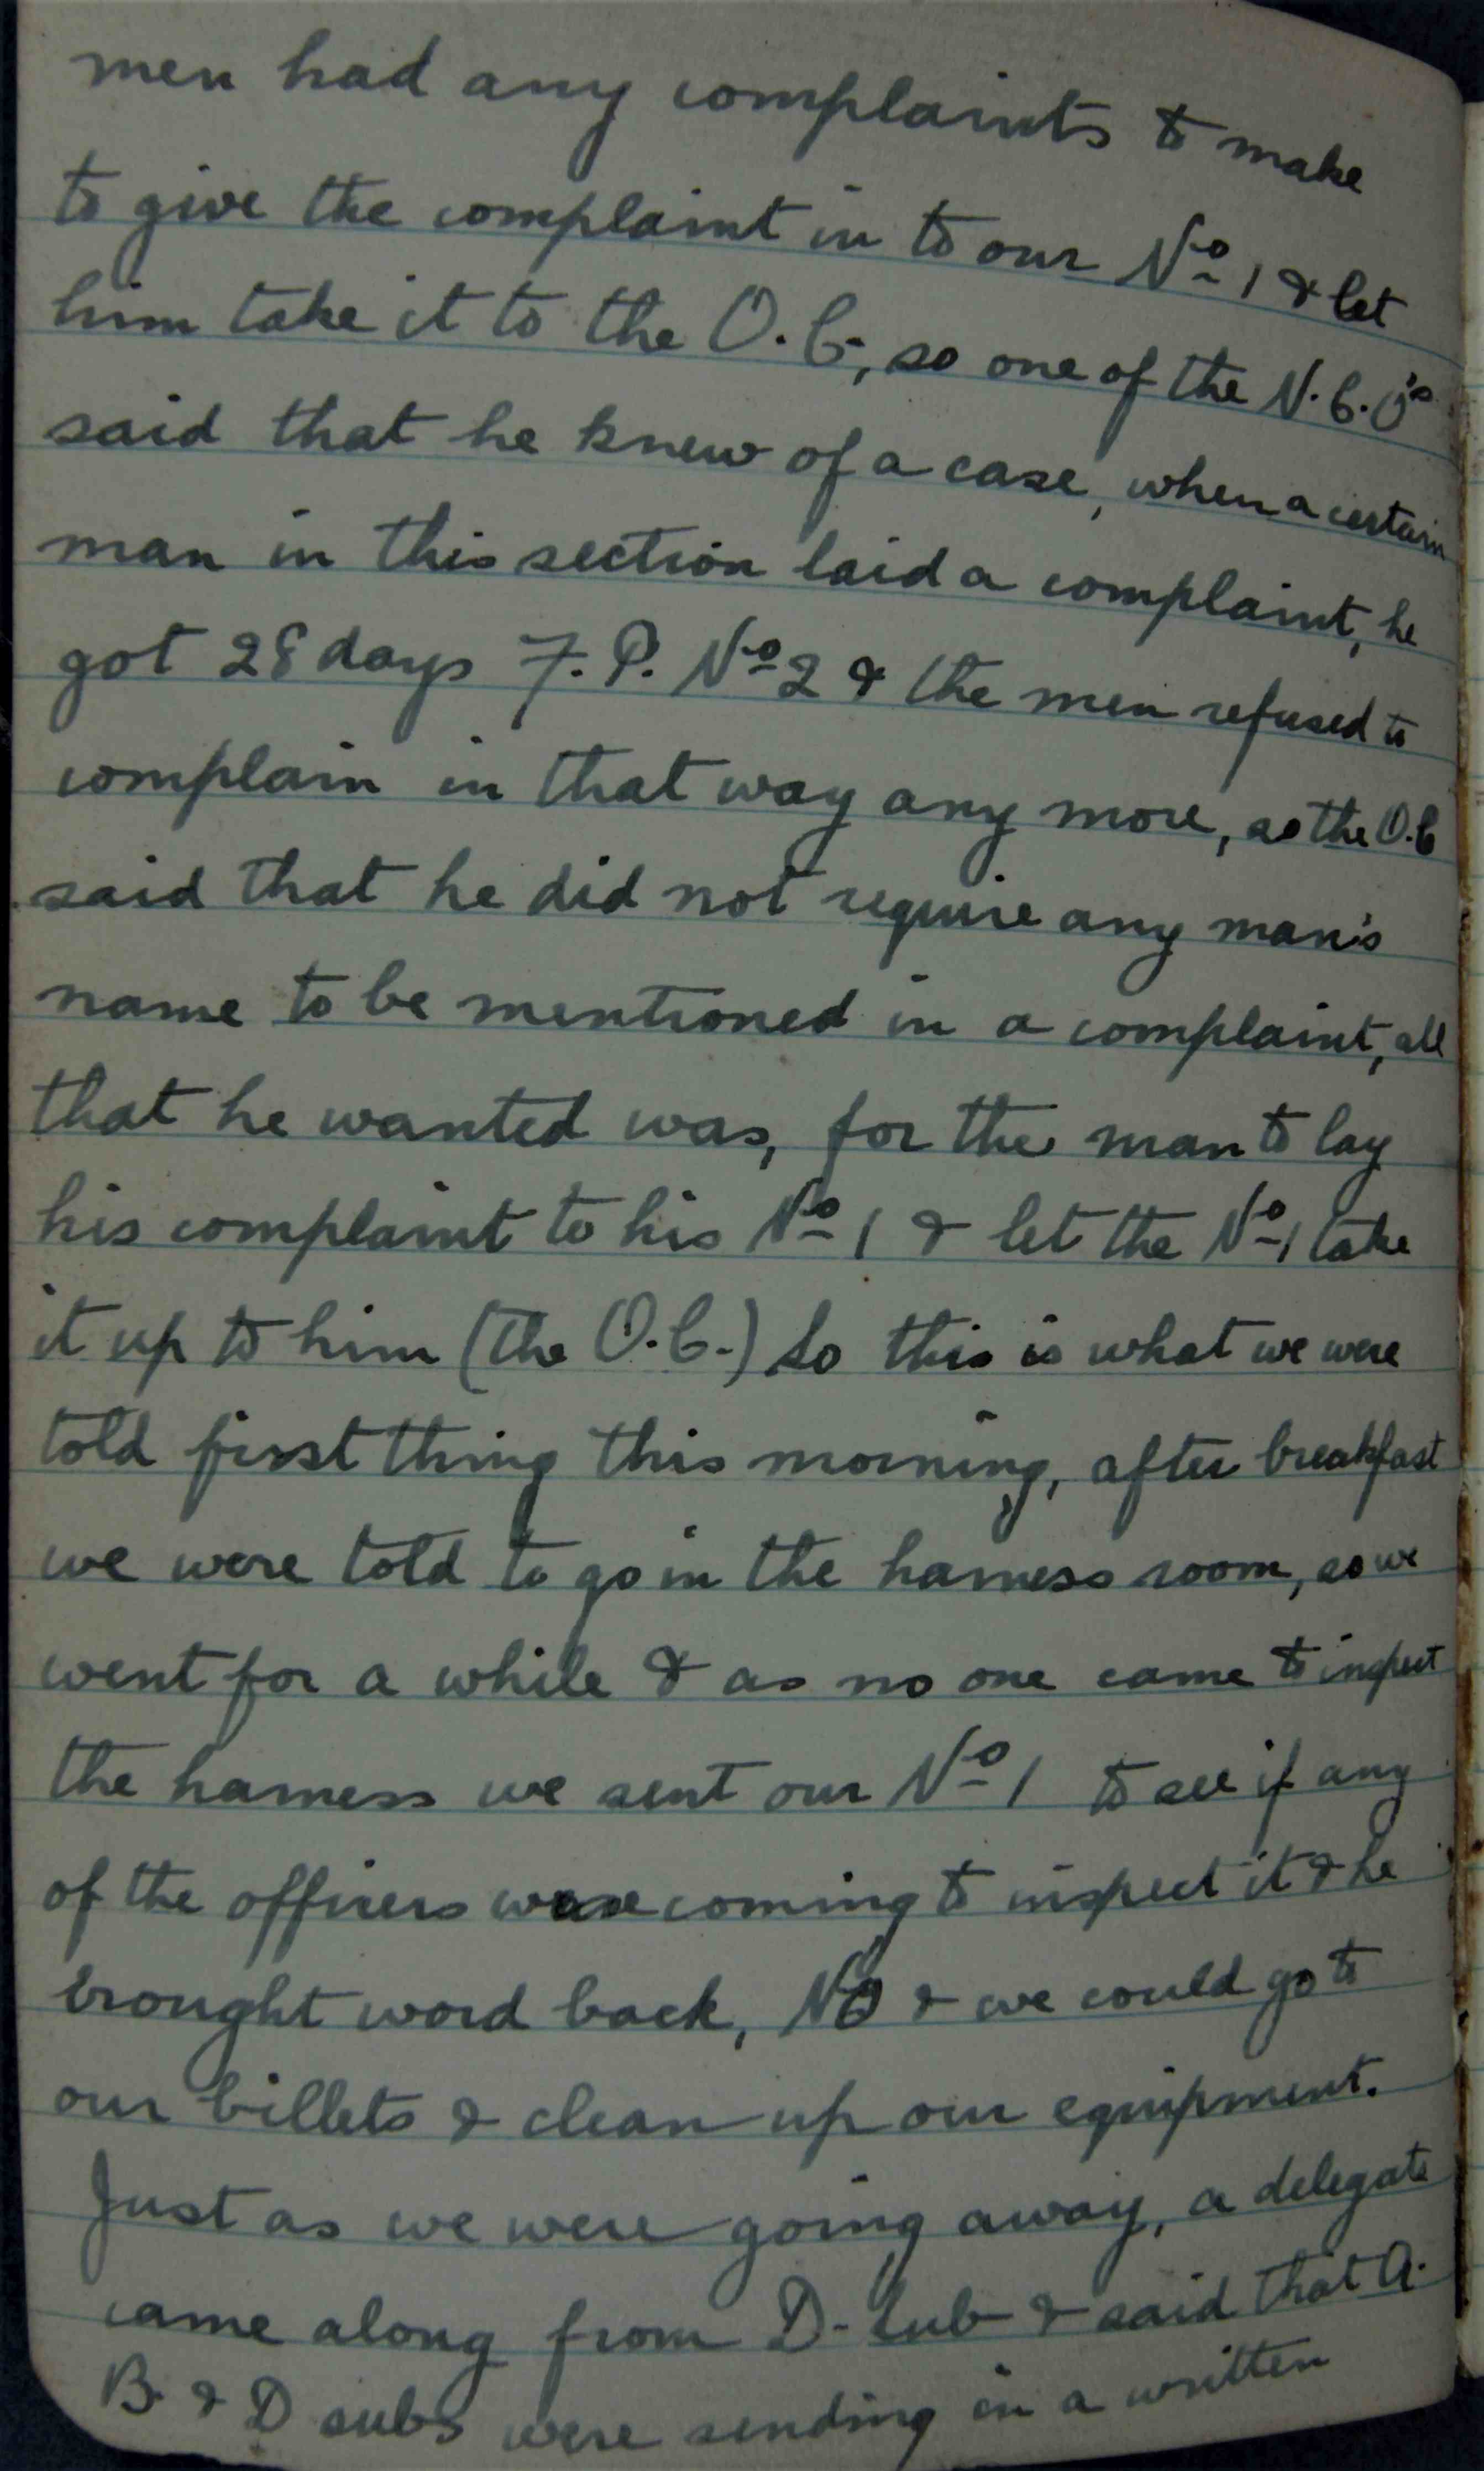 men had any complaints to make
to give the complaint in to our Nº 1 & let
him take it to the O.C., so one of the N.C.O's
said that he knew of a case, when a certain
man in this section laid a complaint, he
got 28 days F.P. Nº 2 & the men refused to
complain in that way any more, so the O.C
said that he did not require any man's
name to be mentioned in a complaint, all
that he wanted was, for the man to lay
his complaint to his Nº 1 & let the Nº 1 take
it up to him (the O.C.) So this is what we were
told first thing this morning, after breakfast
we were told to go in the harness room, so we
went for a while & as no one came to inspect
the harness we sent our Nº 1 to see if any
of the officers were coming to inspect it & he
brought word back, NO & we could go to
our billets & clean up our equipment.
Just as we were going away, a delegate
came along from D-Sub & said that A.
B. & D subs were sending in a written